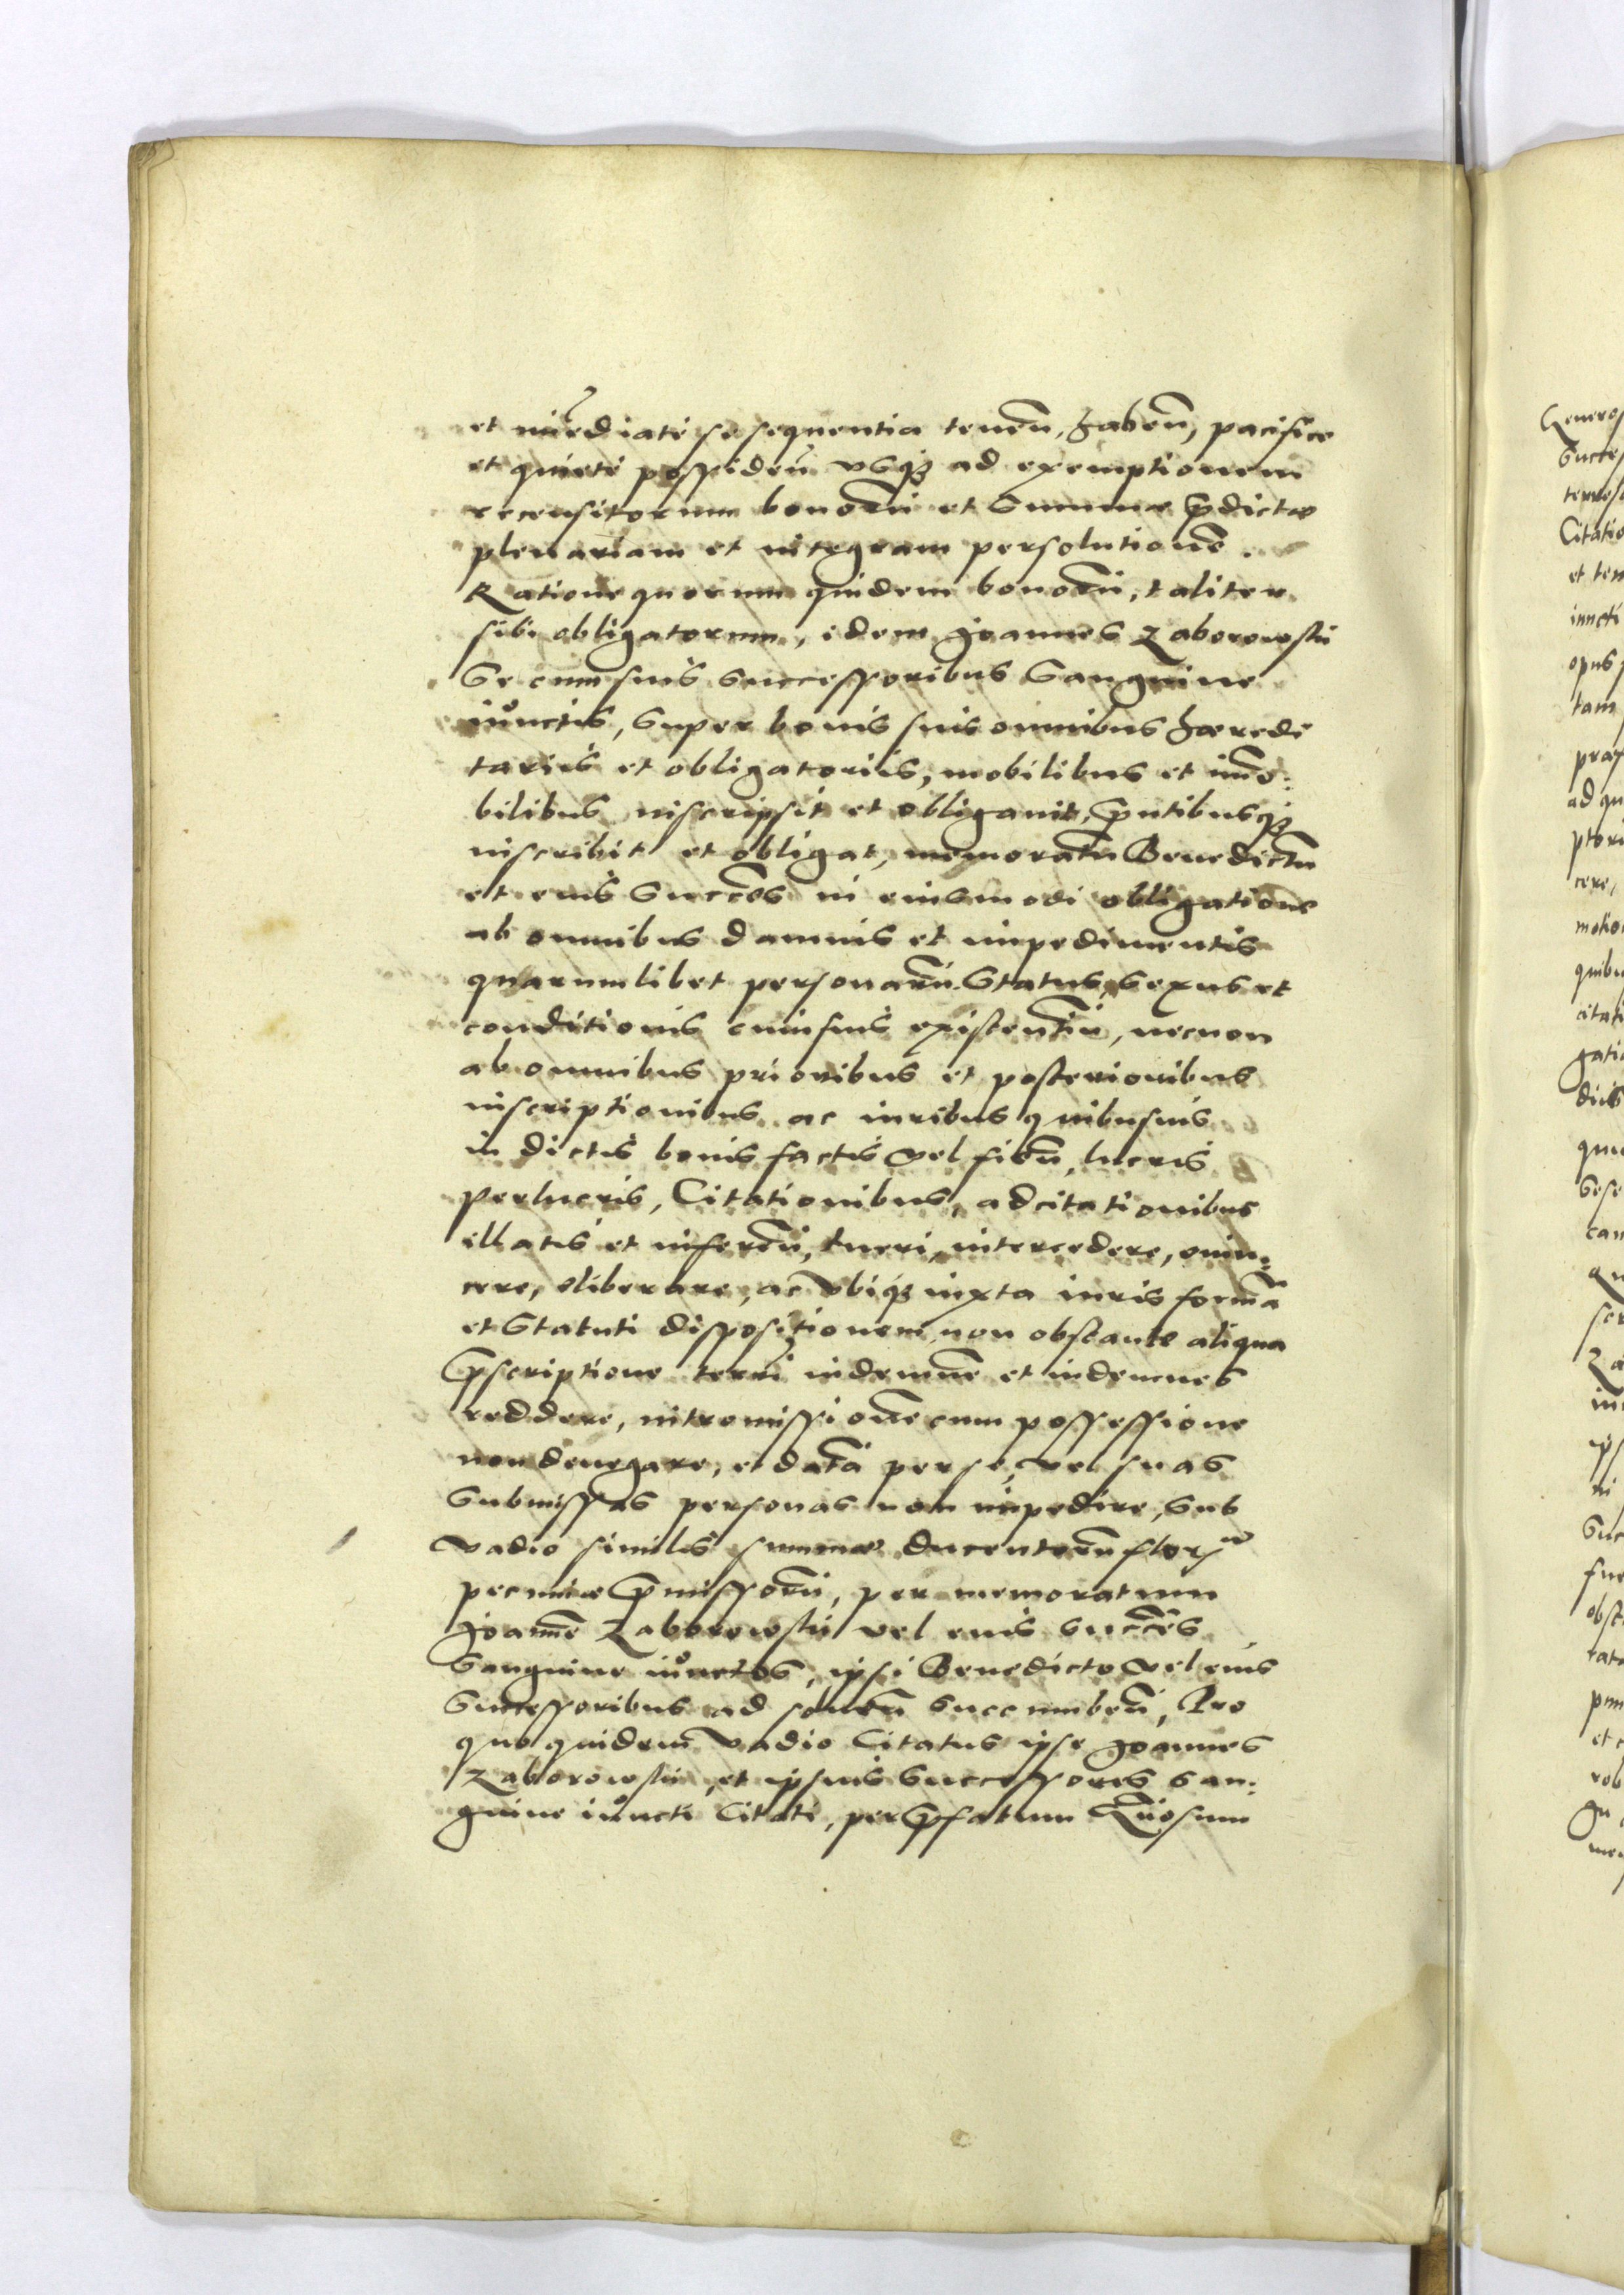 et im̃ediate se sequentia teneñ, habeñ, pacifice
et quiete possideñ vsq3 ad exemptionem
recensitorum bonorũ et Summæ p̃dictæ
plenariam et integram persolutionẽ.
Ratione quorum quidem bonorũ, taliter
sibi obligatorum, idem Joannes Zaborowskii
Se cum suis Successoribus Sanguine
iunctis, Super bonis suis omnibus hæredi
tariis et obligatoriis, mobilibus et im̃o:
bilibus inscripsit et obligauit, p̃ntibusq3
inscribit et obligat, memoratũ Benedictũ
et eius Succẽs in eiusmodi obligatione
ab omnibus damnis et impedimentis
quarumlibet personarũ Status, Sexus et
conditionis cuiusuis existentiũ, necnon
ab omnibus prioribus et posterioribus
inscriptionibus ac iuribus quibusuis
in dictis bonis factis vel fieñ, lucris
perlucris, Citationibus, adcitationibus
illatis et inferẽn, tueri, intercedere, euin:
cere, eliberare, ac vbiq3 iuxta iuris formã
et Statuti dispositionem non obstante aliqua
p̃scriptione terrĩ indemnẽ et indemnes
reddere, intromissionẽ cum possessione
non denegare, et datã per se, vel suas
Submissas personas non impedire, Sub
vadio similis summæ ducentorũ flor
pecuniæ p̃missorũ, per memoratum
Joannẽ Zaborowskii vel eius Succẽs
Sanguine iunctos, ipsi Benedicto vel eius
Successoribus ad solueñ Succumbeñ, Pro
quo quidem vadio Citatus ipse Joannes
Zaborowskii, et ipsius Successores San:
guine iuncti Citati, per p̃fatum Gñosum